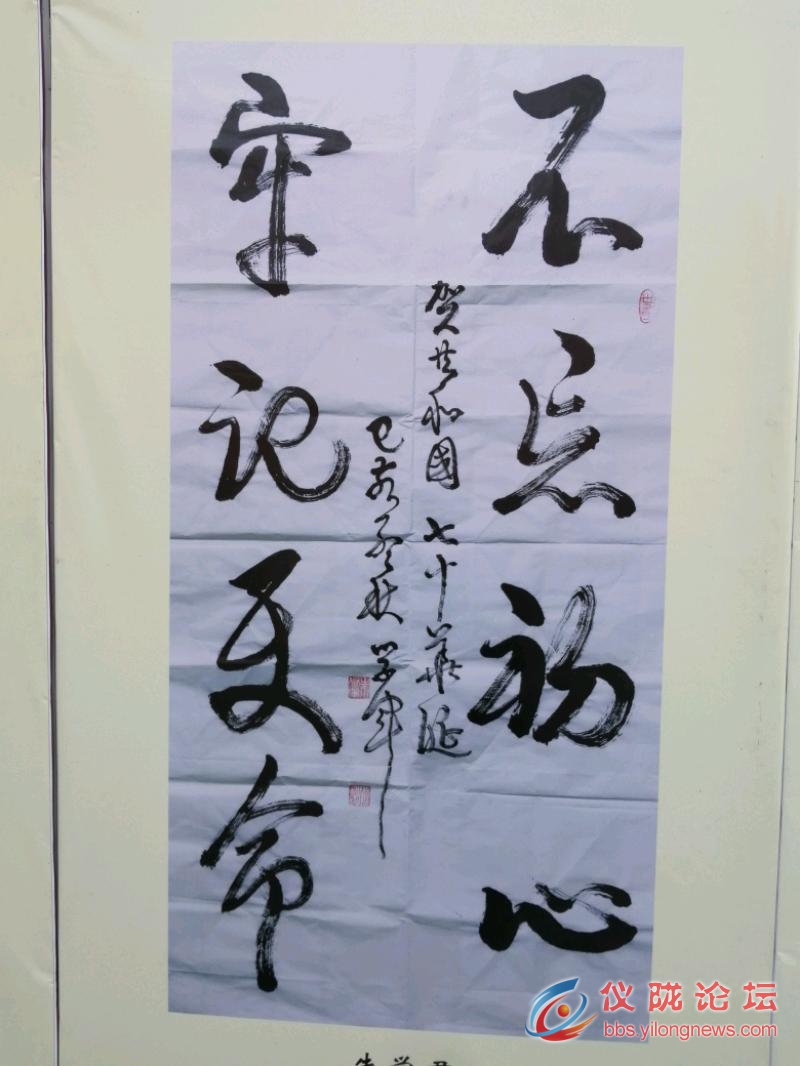 不忘初心
贺共和國七十華诞
己亥孟秋 学军
牢记使命
仪陇论坛
bbs.yilongnews.com